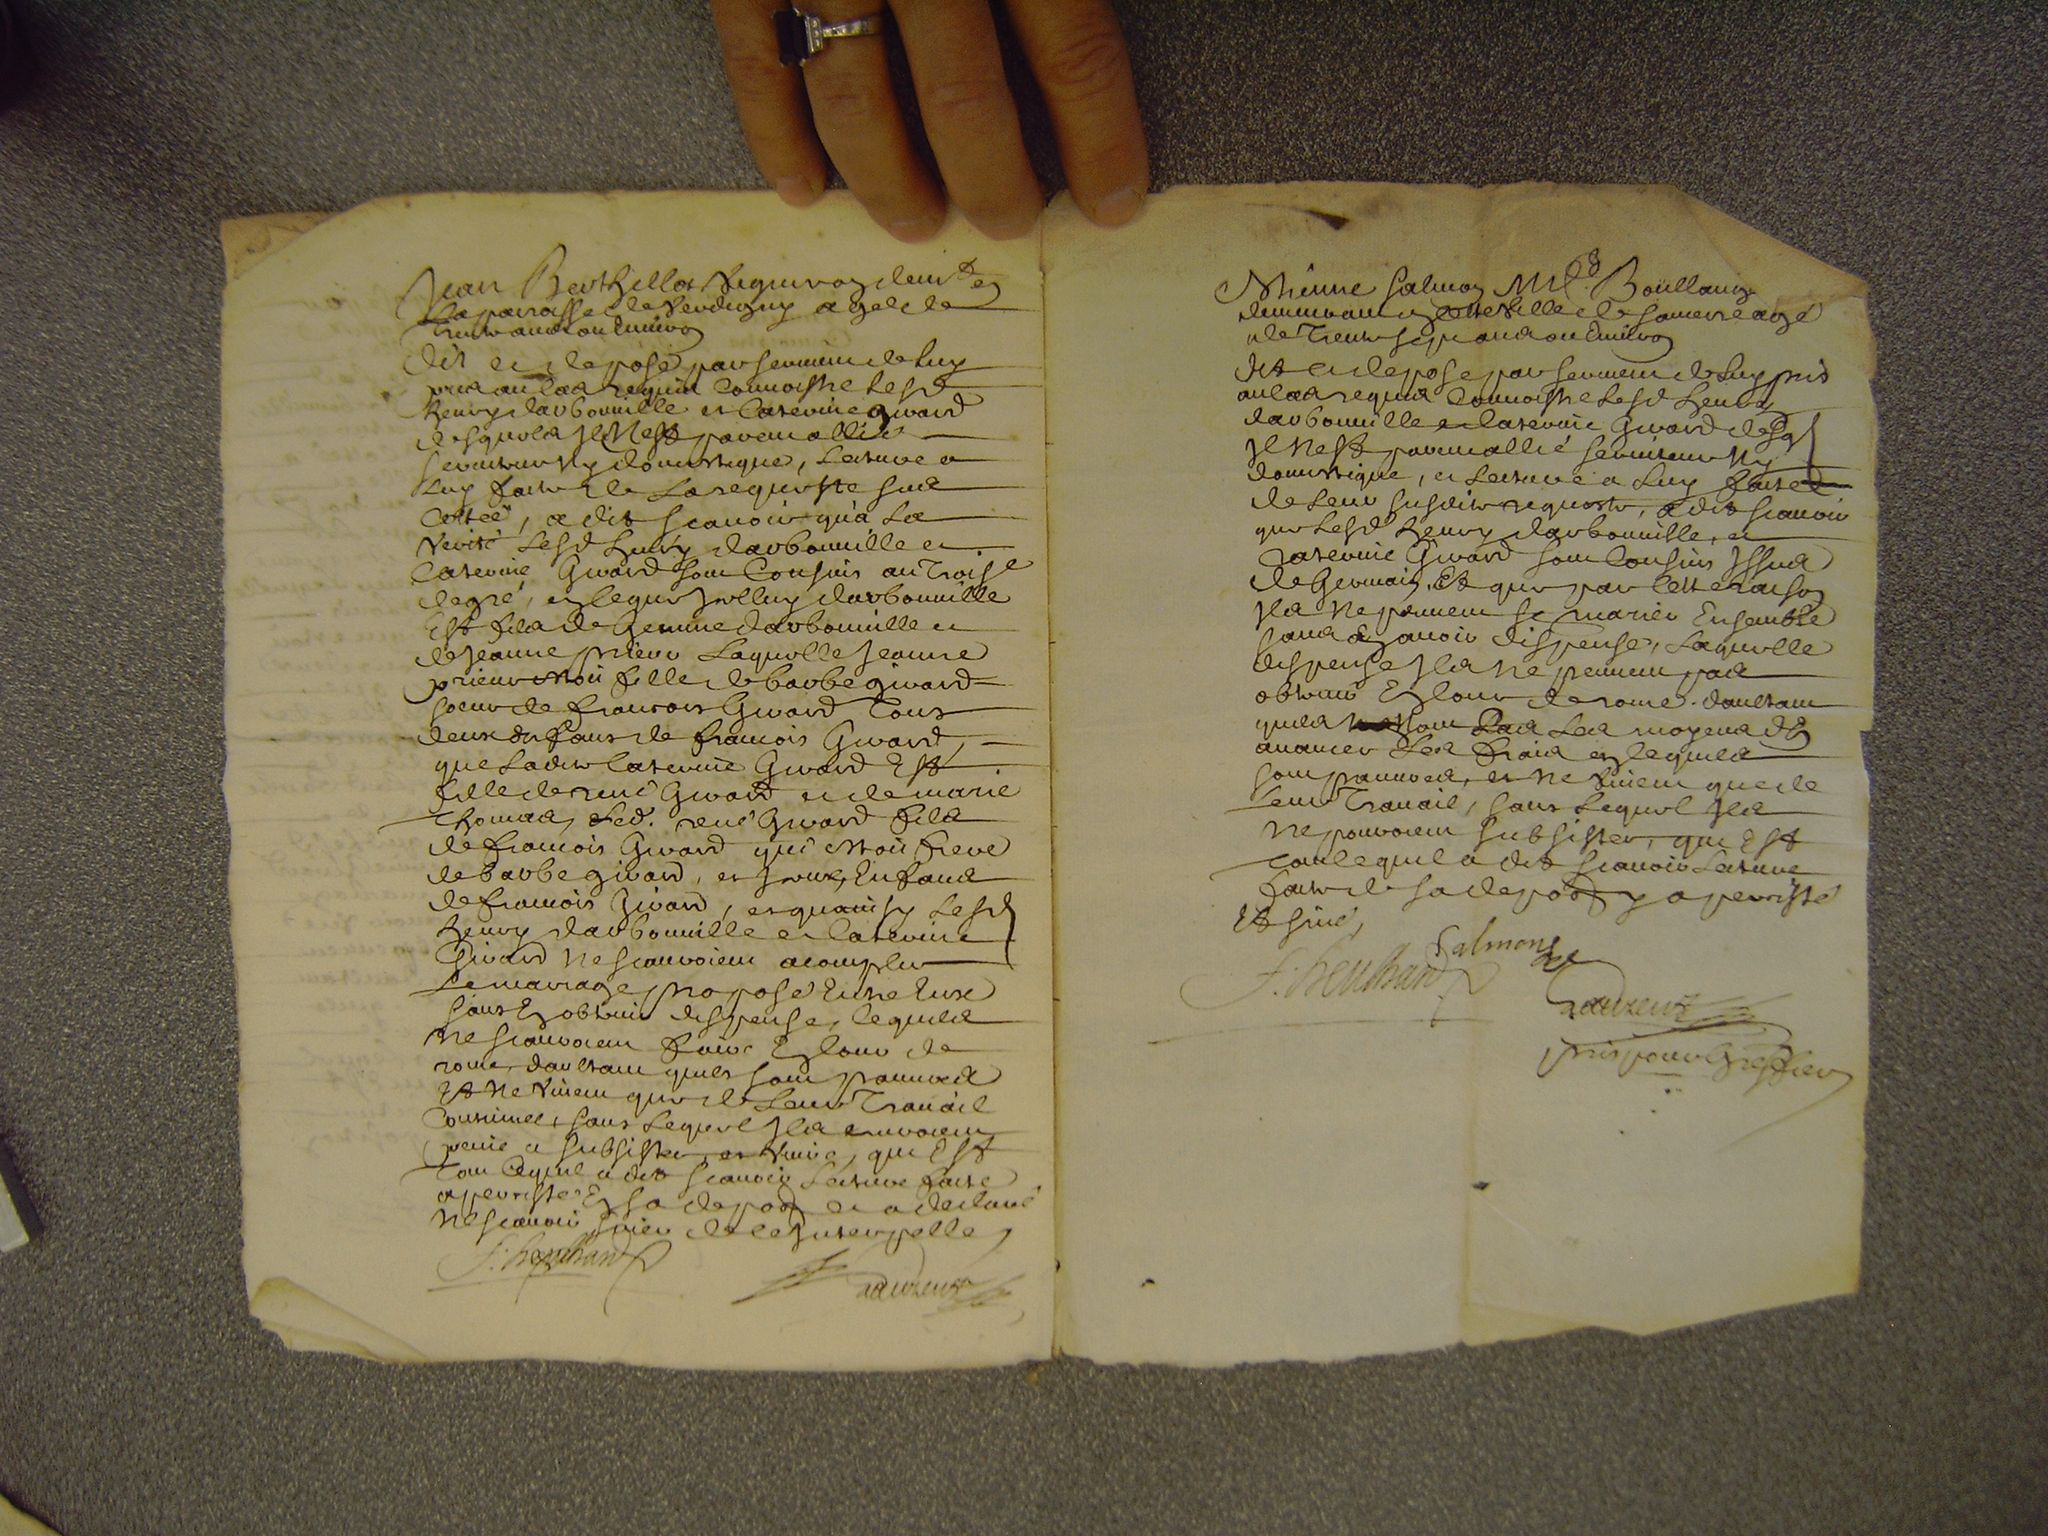 Jean Berthellot vigneron demt en
la paroisse de Verdigny agé de
trente ans ou environ
dit et depose par serment de luy
pris au cas requis connoistre lesd
Henry darbonville et Caterine Girard
desquels Il Nest parent allié
serviteur Ny domestique, lecture a
luy faite de la requeste sus
cottée, a dit scavoir qu'a la
verité lesd Henry darbonville et
Caterine Girard sont Cousins au Trois.e
degré, en ce que Icelluy darbonville
Est fils de darbonville et
de Jeanne prieur laquelle Jeanne
prieur estoit fille de barbe girard
soeur de francois Girard Tous
deux Enfans de francois Girard,
que ladite Caterine Girard Est
fille de rené Girard et de marie
Thomas, led. rené Girard fils
de francois Girard qui estoit frere
de barbe girard, et Iceux Enfans
de francois Girard, et quainsy lesd
Henry darbonville et Caterine
Girard Ne scauroient acomplir
le mariage proposé Entre Eux
sans En obtenir dispense, ce quils
Ne scauroient faire En cour de
rome, daultant quils sont pauvres
Et Ne vivent que de leur Travail
Continuel, sans lequel Ils auroient
peine a subsister et vivre, qui Est
tout ce quil a dit scavoir lecture faite
a persisté En sa depoon et a declaré
Ne scavoir signer de ce Interpellé
Estienne Salmon Md Boullanger
demeurant en cette ville de Sancerre agé
de Trente sept ans ou Environ
dit et depose par serment de luy pris
au cas requis Connoistre lesd Henry
darbonville et Caterine Girard desqls
Il Nest parent allié serviteur Ny
domestique, et lecture a luy faite
de leur susdite requeste, a dit scavoir
que lesd Henry darbonville, et
Caterine Girard sont Cousins Issus
de Germain, Et que par cette raison
Ils Ne peuvent se marier Ensemble
sans En avoir dispense, laquelle
dispense Ils Ne peuvent pas
obtenir En cour de rome, daultant
quils Nont pas les moyens d'En
avancer les frais en ce quils
sont pauvres, et Ne vivent que de
leur Travail, sans lequel Ils
Ne pouroient subsister, qui Est
tout ce quil a dit scavoir lecture
faite de sa depoon y a persisté
Et signé,
Salmon
pris pour Greffier